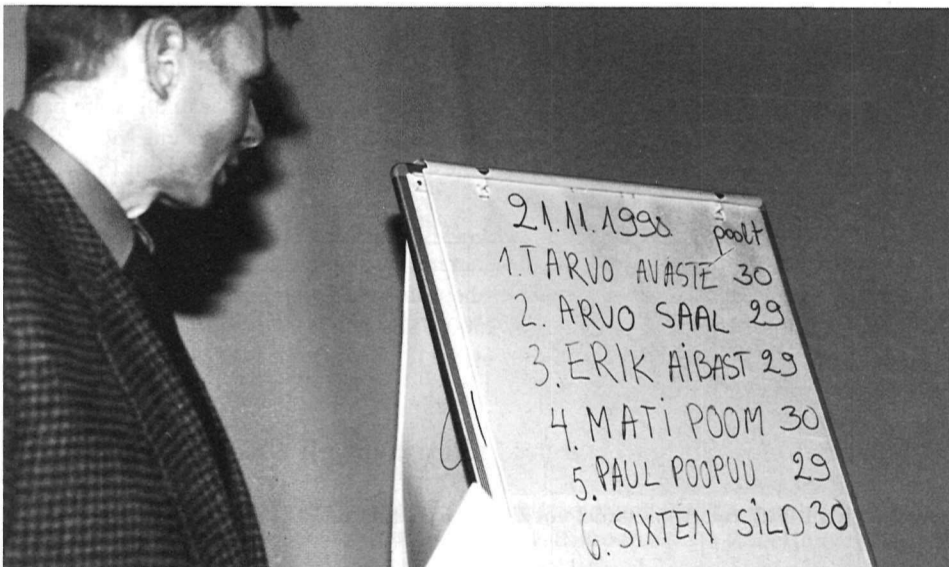 21.11.1998 poolt
1. TARVO AVASTE 30
2. ARVO SAAL 29
3. ERIK AIBAST 29
4. MATI POOM 30
5. PAUL POOPUU 29
6. SIXTEN SILD 30